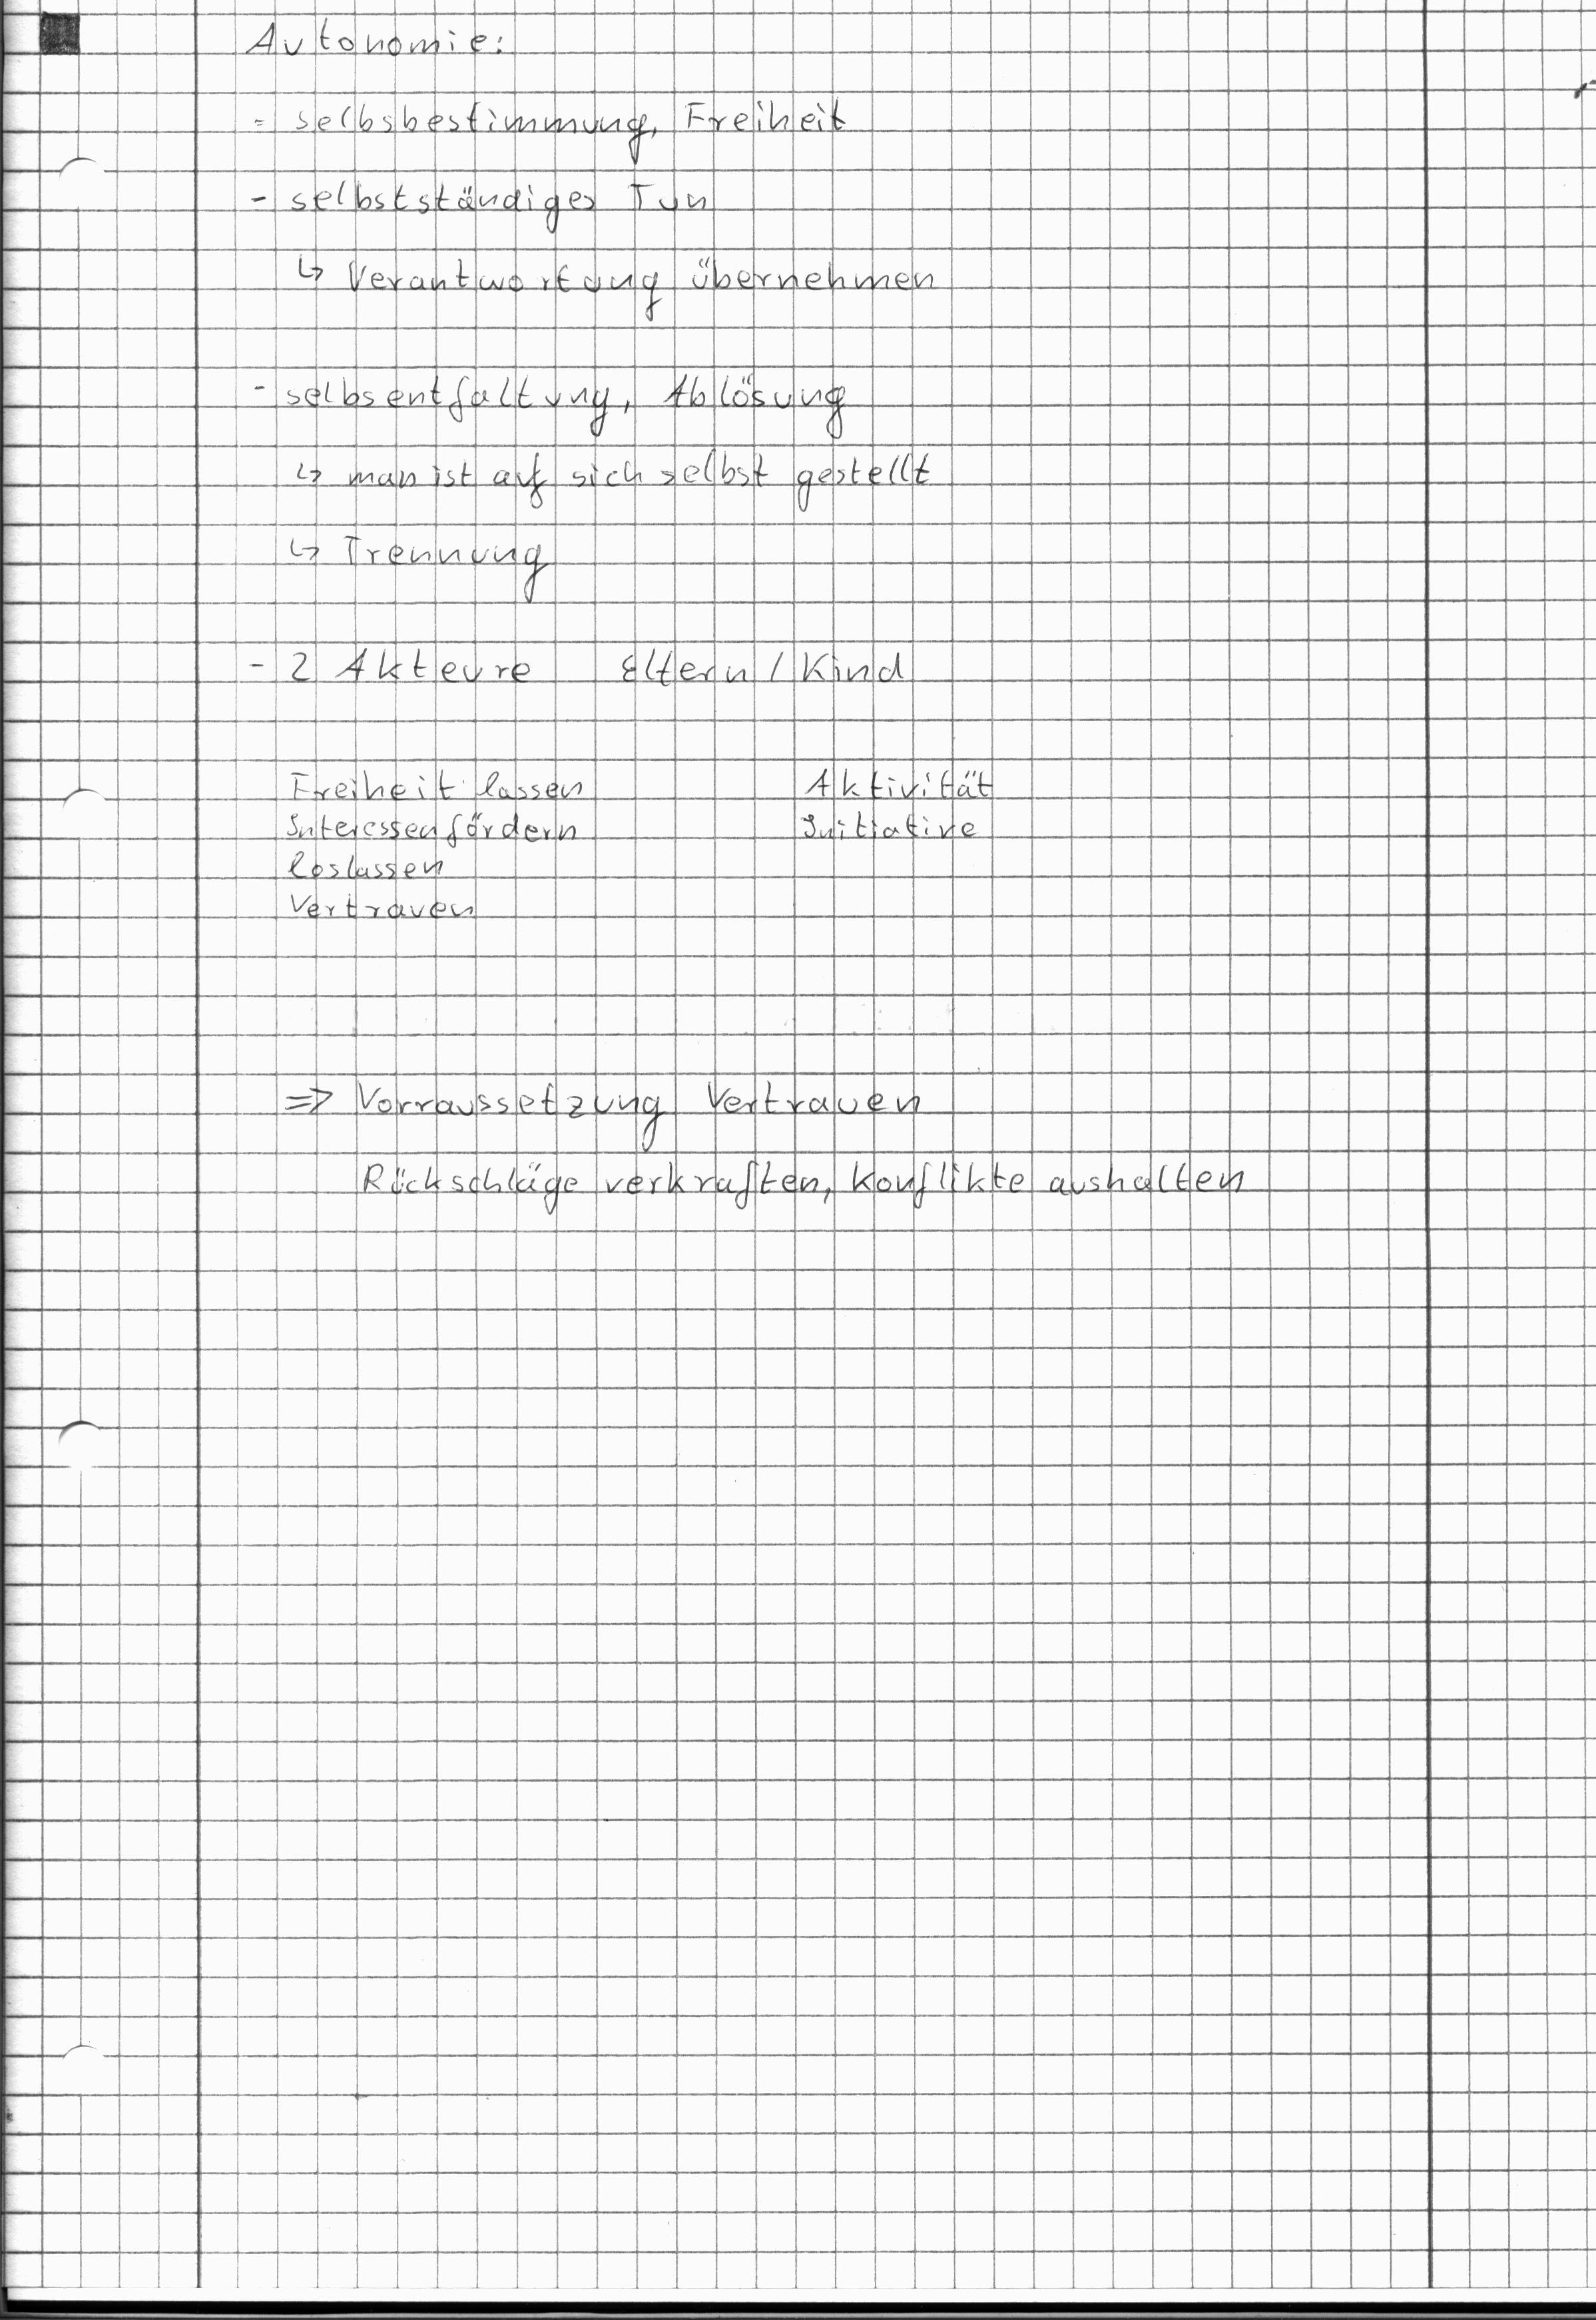 Autonomie:
= selbsbestimmung, Freiheit
- selbstständiges Tun
↳ Verantwortung übernehmen
- selbsentfaltung, Ablösung
↳ man ist auf sich selbst gestellt
↳ Trennung
- 2 Akteure Eltern / Kind
Freiheit lassen Aktivität
Interessen fördern Initiative
loslassen
Vertrauen
=> Vorraussetzung Vertrauen
Rückschläge verkraften, Konflikte aushalten